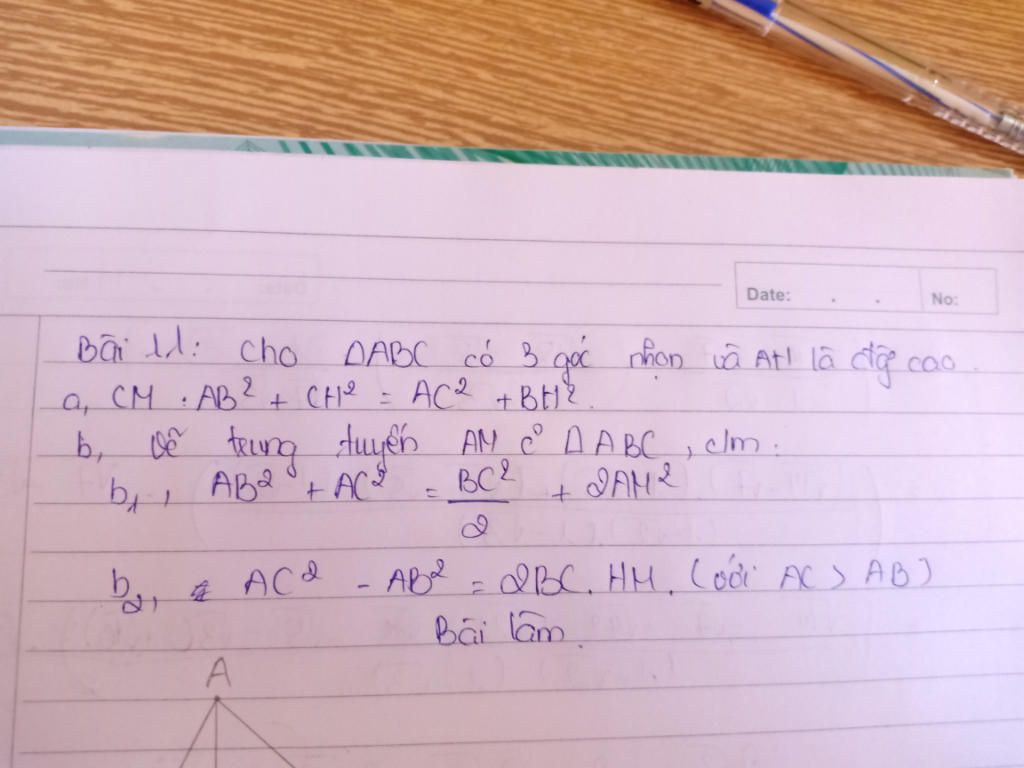 Date: . . No:
Bài 11: Cho ΔABC có 3 góc nhọn và AH là đg̃ cao.
a, CM : AB² + CH² = AC² + BH².
b, Vẽ trung tuyến AM c° ΔABC, c/m:
b₁, AB² + AC² = BC²/2 + 2AM²
b₂, AC² - AB² = 2BC. HM. (với AC > AB)
Bài làm.
A